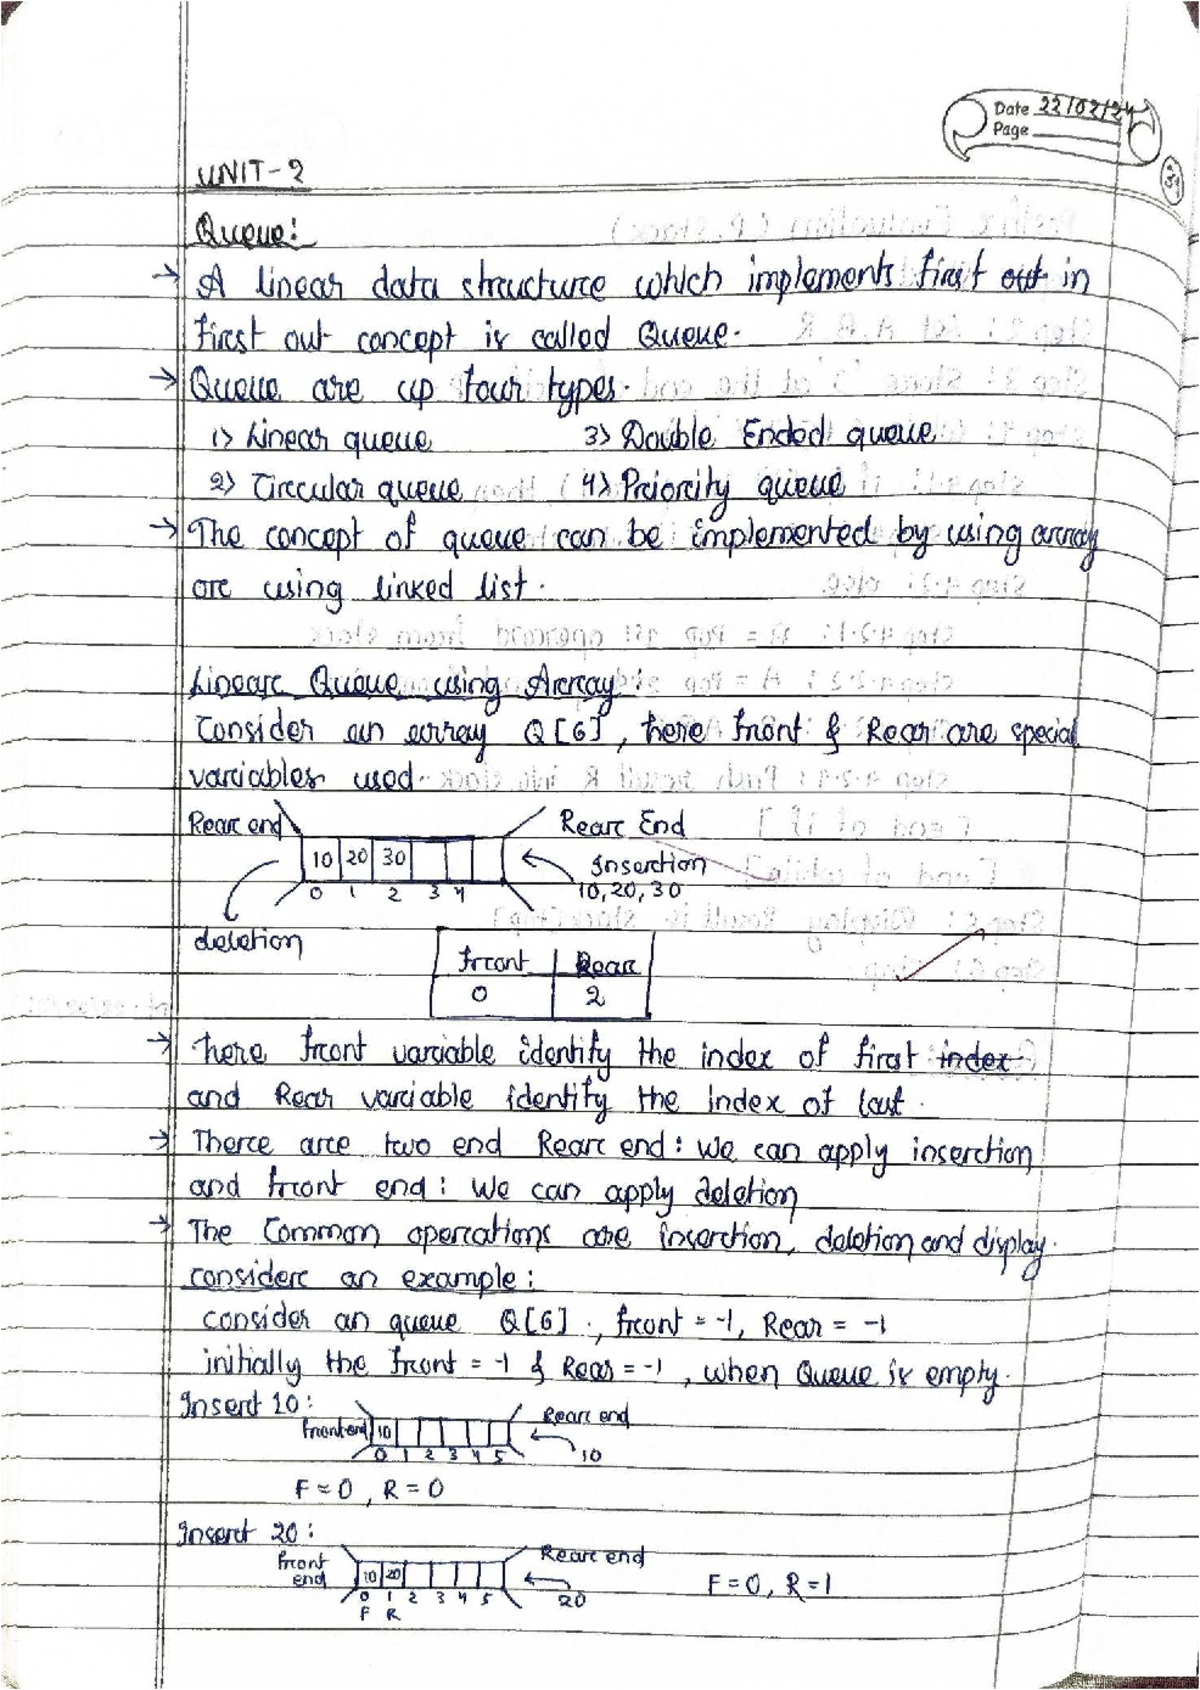 Date 22/02/24
Page
31
UNIT-2
Queue:
→ A linear data structure which implements first out in
first out concept is called Queue.
→ Queue are up four types.
1> Linear queue 3> Double Ended queue
2> Circular queue 4> Priority queue
→ The concept of queue can be implemented by using array
or using linked list.
Linear Queue using Array:
Consider an array Q[6], here front & Rear are special
variables used.
Rear end Rear End
10 20 30 Insertion
0 1 2 3 4 10, 20, 30
deletion
Front Rear
0 2
→ here front variable identify the index of first index
and Rear variable identify the index of last.
→ There are two end Rear end: we can apply insertion
and front end: we can apply deletion
→ The Common operations are insertion, deletion and display.
consider an example:
consider an queue Q[6], front = -1, Rear = -1
initially the front = -1 & Rear = -1, when Queue is empty.
Insert 10: Rear end
Front end 10
0 1 2 3 4 5 10
F = 0, R = 0
Insert 20:
Front end 10 20 Rear end F = 0, R = 1
0 1 2 3 4 5 20
F R